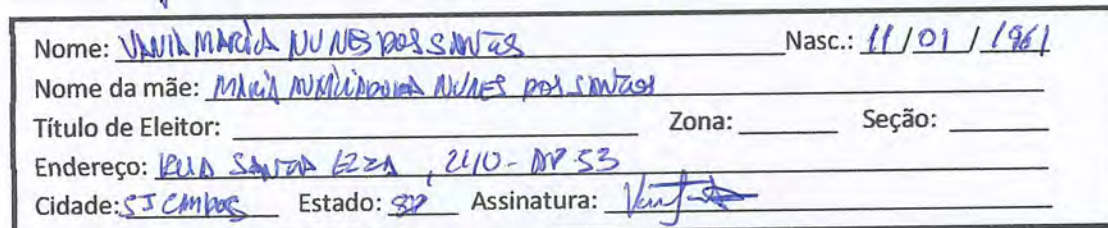 Nome: VANIA MARIA NUNES DOS SANTOS Nasc.: 11/01/1961
Nome da mãe: MARIA AUXILIADORA NUNES DOS SANTOS
Título de Eleitor: Zona: Seção:
Endereço: RUA SANTA EZZA, 240 - AP 53
Cidade: SJ CAMPOS Estado: SP Assinatura: